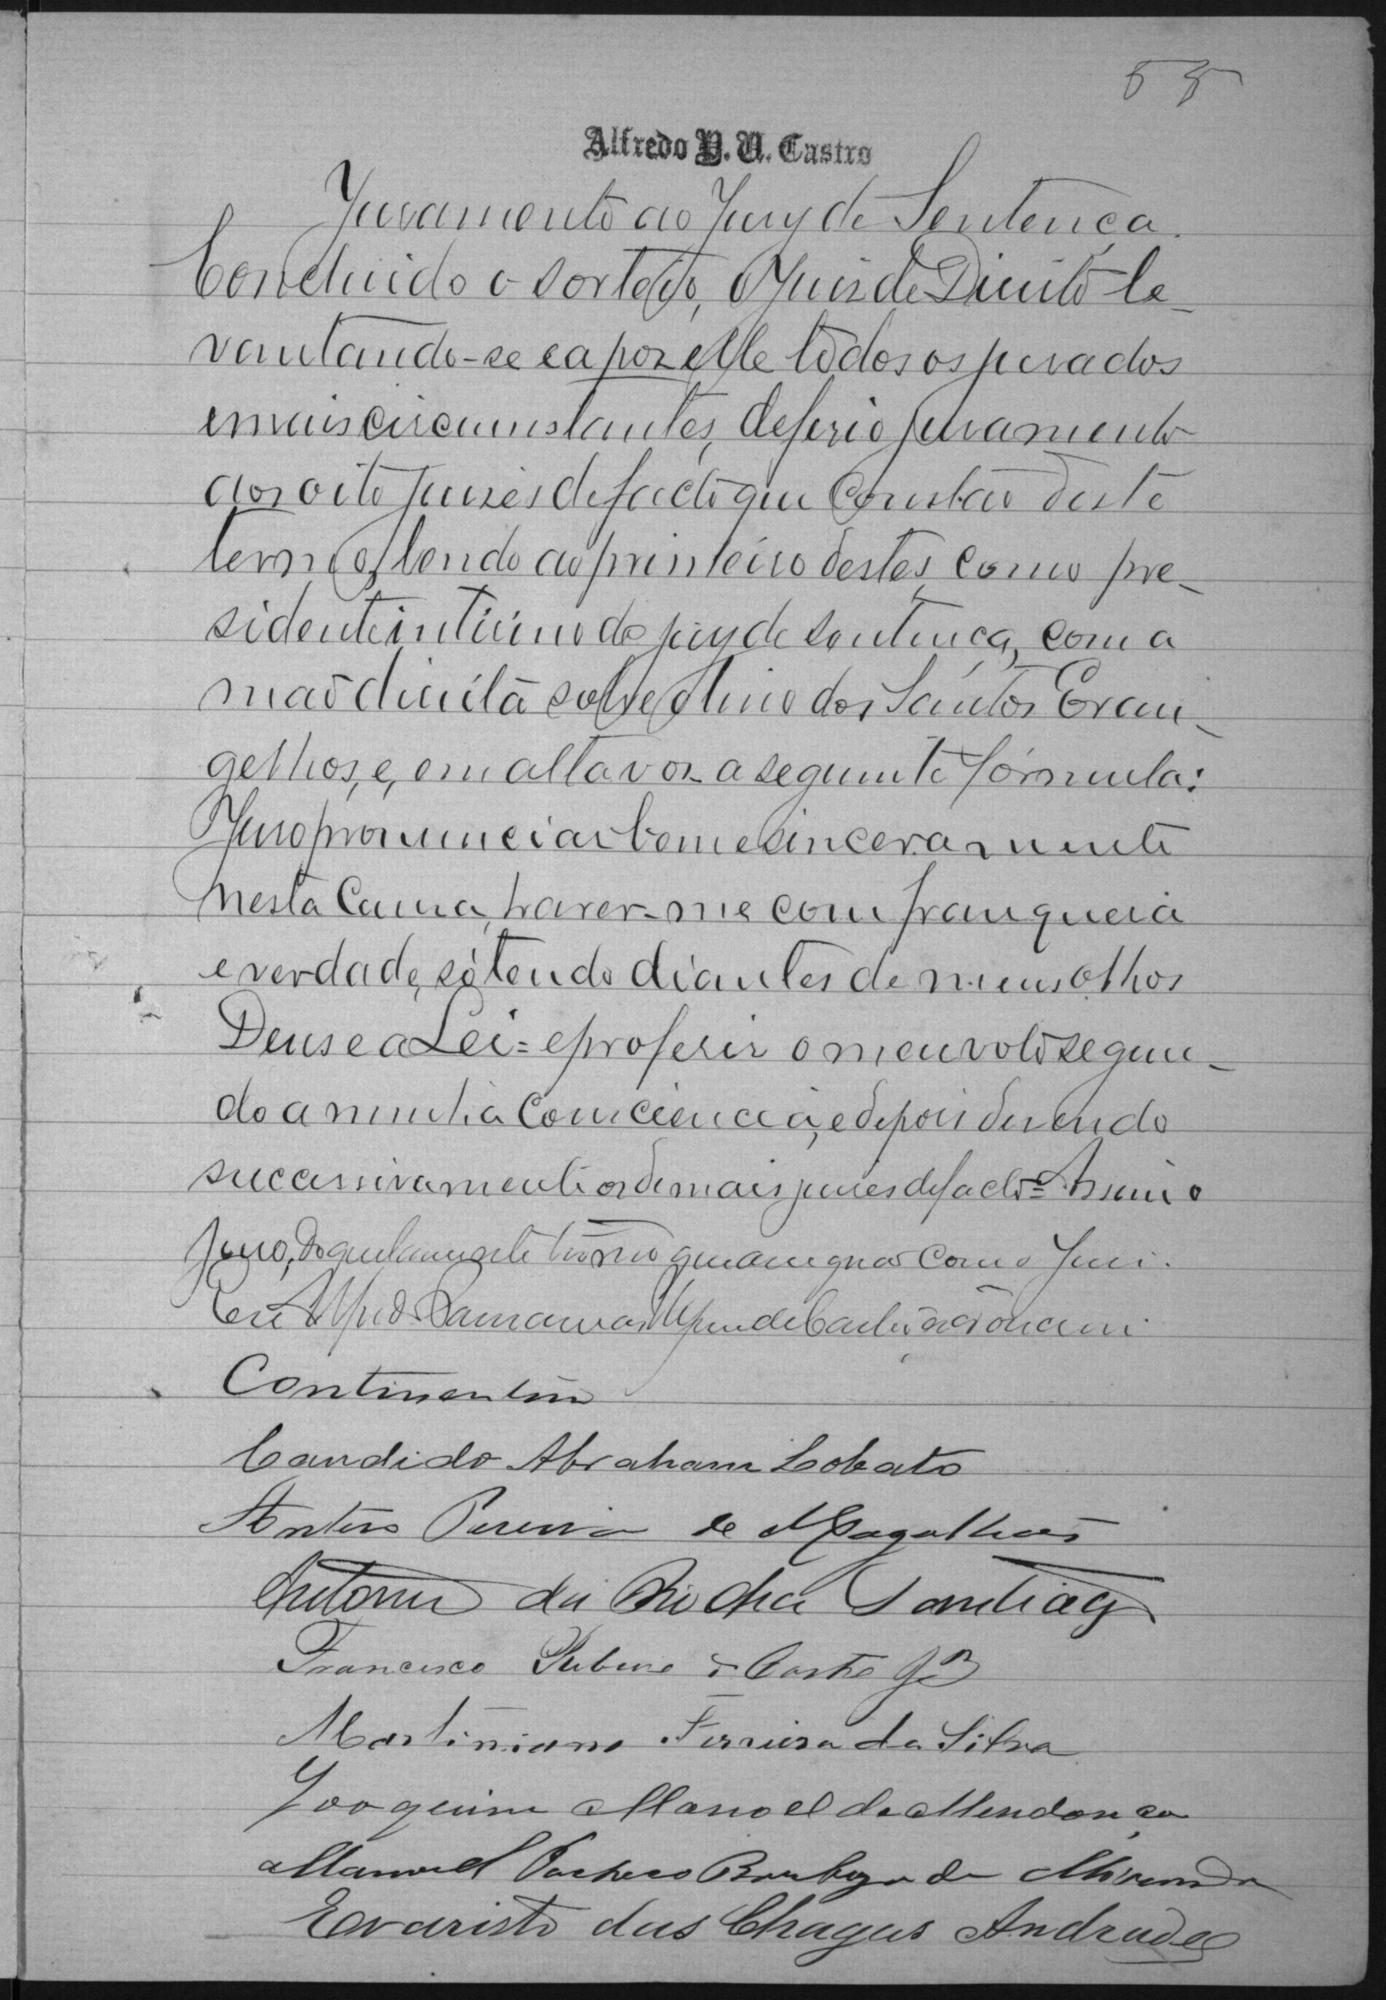 58
Alfredo P. V. Castro
Juramento ao Jury de Sentença.
Concluido o sorteio, o Juiz de Direito le-
vantando-se e apoz elle todos os jurados
e mais circumstantes, deferio juramento
aos oito juizes de facto que constão deste
termo, lendo ao primeiro destes, como pre-
sidente interino do jury de sentença, com a
mão direita sobre o livro dos Santos Evan-
gelhos, e, em alta voz a seguinte fórmula:
Juro pronunciar bem e sinceramente
nesta Causa, haver-me com franqueza
e verdade, só tendo diantes de meus olhos
Deus e a Lei = e proferir o meu voto segun-
do a minha Consciencia, e depois dizendo
successivamente os demais juizes de facto = Assim o
juro, do que lavro este termo que assignão com o Juiz.
Eu Alfredo de Castro escrivão o escrevi.
Continentino
Candido Abraham Lobato
Antero Pereira de Magalhães
Antonio da Rocha Santiago
Francisco Rubino de Castro Jor
Martiniano Ferreira da Silva
Joaquim Manoel de Mendonça
Manoel Pacheco Barboza de Miranda
Evaristo das Chagas Andrade